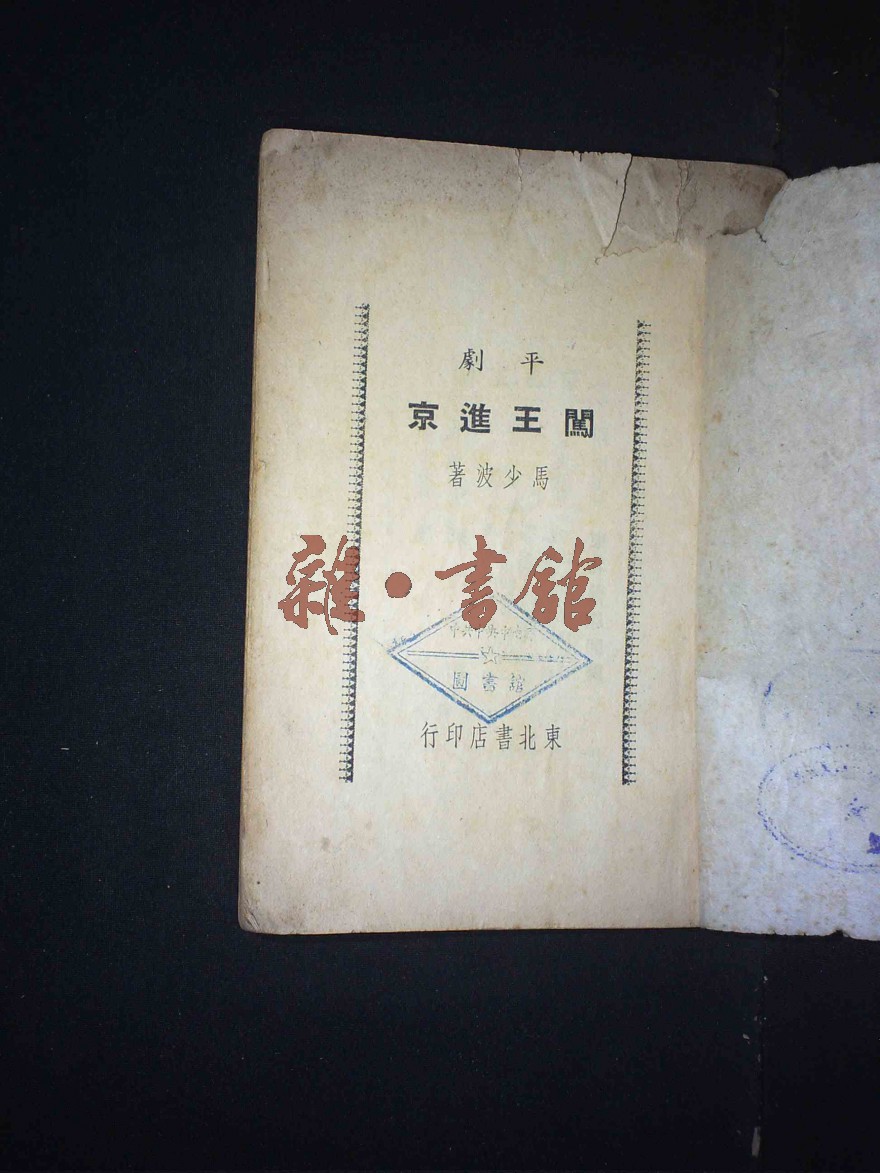 平劇
闖王進京
馬少波著
雜·書館
圖書館
東北書店印行